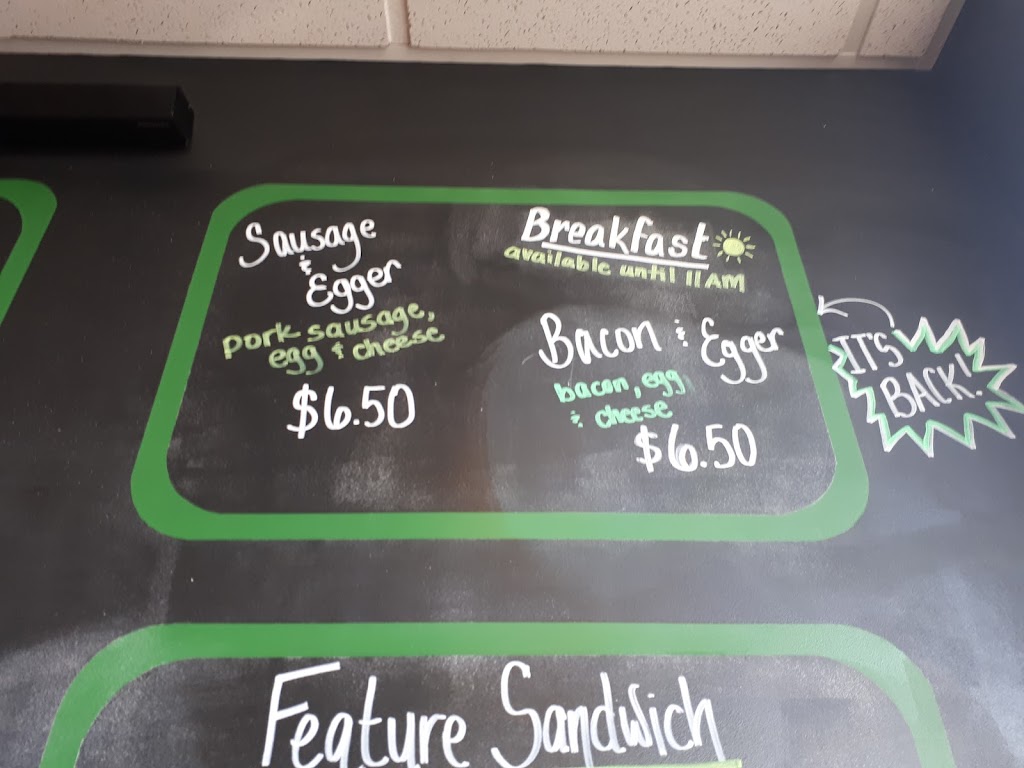 Sausage
&
Egger
pork sausage,
egg & cheese
$6.50
Breakfast
available until 11AM
Bacon & Egger
bacon, egg
& cheese
$6.50
IT'S
BACK!
Feature Sandwich